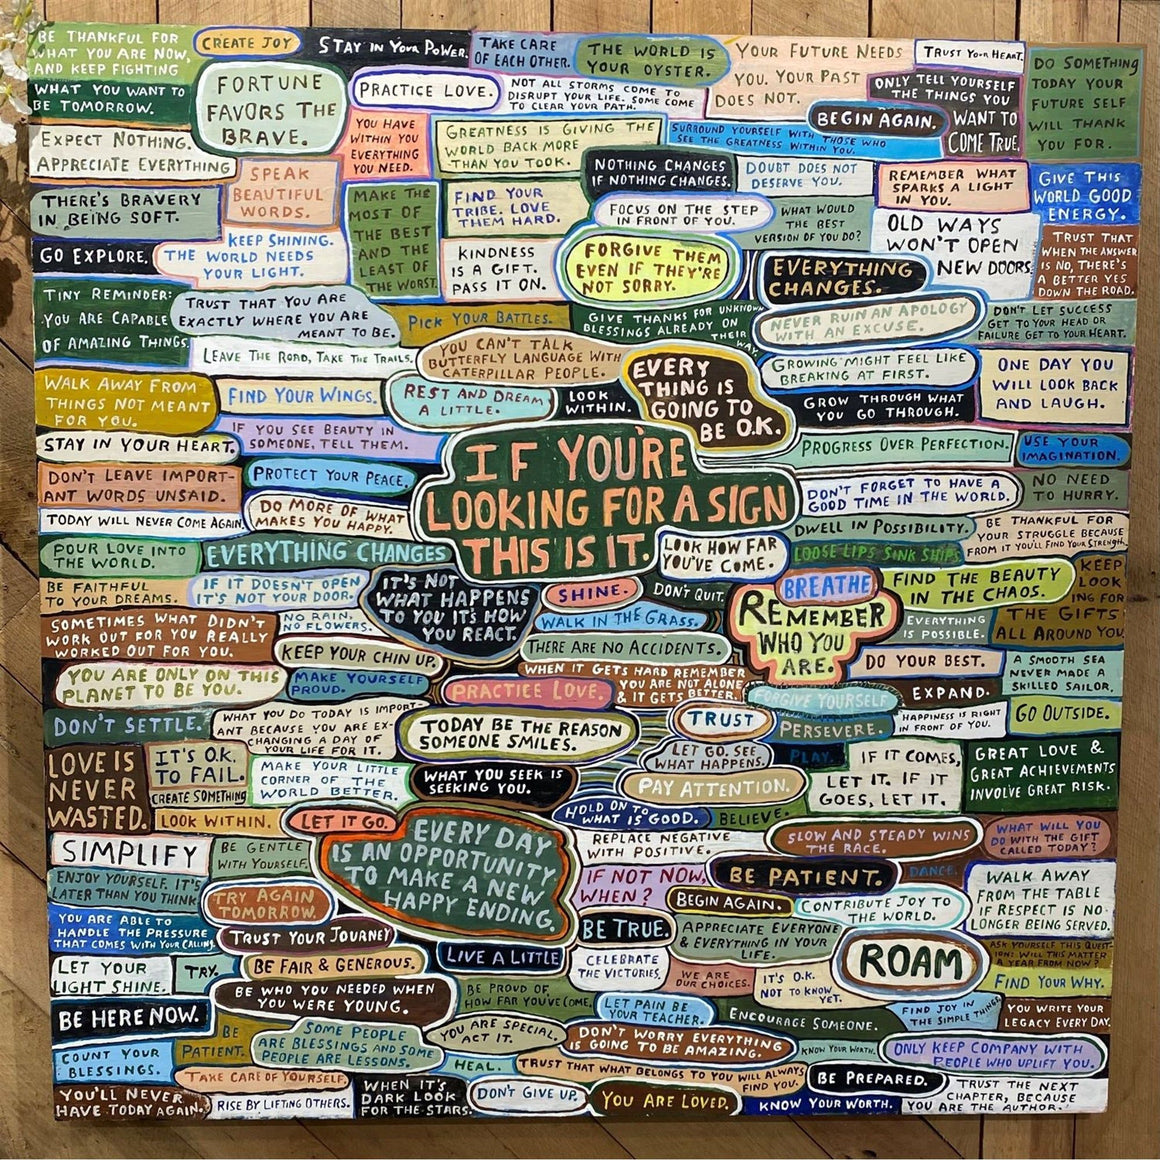 BE THANKFUL FOR
WHAT YOU ARE NOW,
AND KEEP FIGHTING
WHAT YOU WANT TO
BE TOMORROW.
CREATE JOY
STAY IN YOUR POWER.
TAKE CARE
OF EACH OTHER.
THE WORLD IS
YOUR OYSTER.
YOUR FUTURE NEEDS
YOU. YOUR PAST
DOES NOT.
TRUST YOUR HEART.
DO SOMETHING
TODAY YOUR
FUTURE SELF
WILL THANK
YOU FOR.
FORTUNE
FAVORS THE
BRAVE.
PRACTICE LOVE.
NOT ALL STORMS COME TO
DISRUPT YOUR LIFE. SOME COME
TO CLEAR YOUR PATH.
ONLY TELL YOURSELF
THE THINGS YOU
WANT TO
COME TRUE.
BEGIN AGAIN.
EXPECT NOTHING.
APPRECIATE EVERYTHING
YOU HAVE
WITHIN YOU
EVERYTHING
YOU NEED.
GREATNESS IS GIVING THE
WORLD BACK MORE
THAN YOU TOOK.
SURROUND YOURSELF WITH THOSE WHO
SEE THE GREATNESS WITHIN YOU.
SPEAK
BEAUTIFUL
WORDS.
NOTHING CHANGES
IF NOTHING CHANGES.
DOUBT DOES NOT
DESERVE YOU.
REMEMBER WHAT
SPARKS A LIGHT
IN YOU.
GIVE THIS
WORLD GOOD
ENERGY.
THERE'S BRAVERY
IN BEING SOFT.
MAKE THE
MOST OF
THE BEST
AND THE
LEAST OF
THE WORST.
FIND YOUR
TRIBE. LOVE
THEM HARD.
FOCUS ON THE STEP
IN FRONT OF YOU.
WHAT WOULD
THE BEST
VERSION OF YOU DO?
OLD WAYS
WON'T OPEN
NEW DOORS.
TRUST THAT
WHEN THE ANSWER
IS NO, THERE'S
A BETTER YES
DOWN THE ROAD.
GO EXPLORE.
KEEP SHINING.
THE WORLD NEEDS
YOUR LIGHT.
KINDNESS
IS A GIFT.
PASS IT ON.
FORGIVE THEM
EVEN IF THEY'RE
NOT SORRY.
EVERYTHING
CHANGES.
TINY REMINDER:
YOU ARE CAPABLE
OF AMAZING THINGS.
TRUST THAT YOU ARE
EXACTLY WHERE YOU ARE
MEANT TO BE.
PICK YOUR BATTLES.
GIVE THANKS FOR UNKNOWN
BLESSINGS ALREADY ON
THEIR WAY.
NEVER RUIN AN APOLOGY
WITH AN EXCUSE.
DON'T LET SUCCESS
GET TO YOUR HEAD OR
FAILURE GET TO YOUR HEART.
LEAVE THE ROAD, TAKE THE TRAILS.
YOU CAN'T TALK
BUTTERFLY LANGUAGE WITH
CATERPILLAR PEOPLE.
EVERY
THING IS
GOING TO
BE O.K.
GROWING MIGHT FEEL LIKE
BREAKING AT FIRST.
ONE DAY YOU
WILL LOOK BACK
AND LAUGH.
WALK AWAY FROM
THINGS NOT MEANT
FOR YOU.
FIND YOUR WINGS.
REST AND DREAM
A LITTLE.
LOOK
WITHIN.
GROW THROUGH WHAT
YOU GO THROUGH.
STAY IN YOUR HEART.
IF YOU SEE BEAUTY IN
SOMEONE, TELL THEM.
IF YOU'RE
LOOKING FOR A SIGN
THIS IS IT.
PROGRESS OVER PERFECTION.
USE YOUR
IMAGINATION.
DON'T LEAVE IMPORT-
ANT WORDS UNSAID.
PROTECT YOUR PEACE.
DON'T FORGET TO HAVE A
GOOD TIME IN THE WORLD.
NO NEED
TO HURRY.
TODAY WILL NEVER COME AGAIN.
DO MORE OF WHAT
MAKES YOU HAPPY.
DWELL IN POSSIBILITY.
BE THANKFUL FOR
YOUR STRUGGLE BECAUSE
FROM IT YOU'LL FIND YOUR STRENGTH.
POUR LOVE INTO
THE WORLD.
EVERYTHING CHANGES
LOOK HOW FAR
YOU'VE COME.
LOOSE LIPS SINK SHIPS
BE FAITHFUL
TO YOUR DREAMS.
IF IT DOESN'T OPEN
IT'S NOT YOUR DOOR.
IT'S NOT
WHAT HAPPENS
TO YOU IT'S HOW
YOU REACT.
SHINE.
DON'T QUIT.
BREATHE
FIND THE BEAUTY
IN THE CHAOS.
KEEP
LOOK
ING FOR
THE GIFTS
ALL AROUND YOU.
SOMETIMES WHAT DIDN'T
WORK OUT FOR YOU REALLY
WORKED OUT FOR YOU.
NO RAIN.
NO FLOWERS.
WALK IN THE GRASS.
REMEMBER
WHO YOU
ARE.
EVERYTHING
IS POSSIBLE.
KEEP YOUR CHIN UP.
THERE ARE NO ACCIDENTS.
DO YOUR BEST.
A SMOOTH SEA
NEVER MADE A
SKILLED SAILOR.
YOU ARE ONLY ON THIS
PLANET TO BE YOU.
MAKE YOURSELF
PROUD.
PRACTICE LOVE.
WHEN IT GETS HARD REMEMBER
YOU ARE NOT ALONE
& IT GETS BETTER.
FORGIVE YOURSELF
EXPAND.
DON'T SETTLE.
WHAT YOU DO TODAY IS IMPORT-
ANT BECAUSE YOU ARE EX-
CHANGING A DAY OF
YOUR LIFE FOR IT.
TODAY BE THE REASON
SOMEONE SMILES.
TRUST
PERSEVERE.
HAPPINESS IS RIGHT
IN FRONT OF YOU.
GO OUTSIDE.
LOVE IS
NEVER
WASTED.
IT'S O.K.
TO FAIL.
MAKE YOUR LITTLE
CORNER OF THE
WORLD BETTER.
WHAT YOU SEEK IS
SEEKING YOU.
LET GO. SEE
WHAT HAPPENS.
PLAY.
IF IT COMES,
LET IT. IF IT
GOES, LET IT.
GREAT LOVE &
GREAT ACHIEVEMENTS
INVOLVE GREAT RISK.
CREATE SOMETHING
PAY ATTENTION.
LOOK WITHIN.
LET IT GO.
EVERY DAY
IS AN OPPORTUNITY
TO MAKE A NEW
HAPPY ENDING.
HOLD ON TO
WHAT IS GOOD.
BELIEVE.
SIMPLIFY
BE GENTLE
WITH YOURSELF.
REPLACE NEGATIVE
WITH POSITIVE.
SLOW AND STEADY WINS
THE RACE.
WHAT WILL YOU
DO WITH THE GIFT
CALLED TODAY?
ENJOY YOURSELF. IT'S
LATER THAN YOU THINK
TRY AGAIN
TOMORROW.
IF NOT NOW,
WHEN?
BE PATIENT.
DANCE.
WALK AWAY
FROM THE TABLE
IF RESPECT IS NO
LONGER BEING SERVED.
BEGIN AGAIN.
CONTRIBUTE JOY TO
THE WORLD.
YOU ARE ABLE TO
HANDLE THE PRESSURE
THAT COMES WITH YOUR CALLING.
TRUST YOUR JOURNEY
BE TRUE.
APPRECIATE EVERYONE
& EVERYTHING IN YOUR
LIFE.
ROAM
ASK YOURSELF THIS QUEST-
ION: WILL THIS MATTER
A YEAR FROM NOW?
LET YOUR
LIGHT SHINE.
TRY.
BE FAIR & GENEROUS.
LIVE A LITTLE
CELEBRATE
THE VICTORIES.
WE ARE
OUR CHOICES.
IT'S O.K.
NOT TO KNOW
YET.
FIND YOUR WHY.
BE HERE NOW.
BE WHO YOU NEEDED WHEN
YOU WERE YOUNG.
BE PROUD OF
HOW FAR YOU'VE COME.
LET PAIN BE
YOUR TEACHER.
ENCOURAGE SOMEONE.
FIND JOY IN
THE SIMPLE THINGS
YOU WRITE YOUR
LEGACY EVERY DAY.
BE
PATIENT.
SOME PEOPLE
ARE BLESSINGS AND SOME
PEOPLE ARE LESSONS.
YOU ARE SPECIAL.
ACT IT.
DON'T WORRY EVERYTHING
IS GOING TO BE AMAZING.
KNOW YOUR WORTH.
ONLY KEEP COMPANY WITH
PEOPLE WHO UPLIFT YOU.
COUNT YOUR
BLESSINGS.
TAKE CARE OF YOURSELF.
HEAL.
TRUST THAT WHAT BELONGS TO YOU WILL ALWAYS
FIND YOU.
BE PREPARED.
TRUST THE NEXT
CHAPTER, BECAUSE
YOU ARE THE AUTHOR.
YOU'LL NEVER
HAVE TODAY AGAIN.
RISE BY LIFTING OTHERS.
WHEN IT'S
DARK LOOK
FOR THE STARS.
DON'T GIVE UP.
YOU ARE LOVED.
KNOW YOUR WORTH.